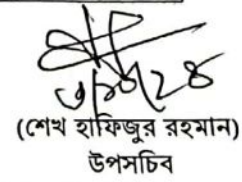 (শেখ হাফিজুর রহমান)
উপসচিব